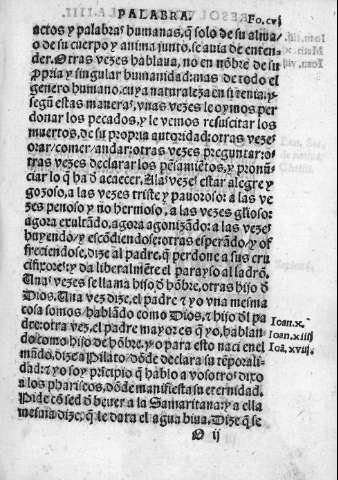 PALABRA.
Fo. cvj
actos y palabras humanas, q̃ solo de su alma
o de su cuerpo y anima junto. se auia de enten-
der. Otras vezes hablaua, no en nõbre de su
ꝓpria y singular humanidad: mas de todo el
genero humano, cuya naturaleza en si tenia, y
segũ estas maneras, vnas vezes le oymos per
donar los pecados, y le vemos resuscitar los
muertos, de su propria autoridad: otras vezes
orar/comer/andar: otras vezes preguntar: o-
tras vezes declarar los pẽsamiẽtos, y pronũ-
ciar lo q̃ ha ð acaecer. A las vezes estar alegre y
gozoso, a las vezes triste y pauoroso: a las ve
zes penoso y no hermoso, a las vezes glioso:
agora exultãdo, agora agonizãdo: a las vezes
huyendo/ y escõdiendose: otras esperãdo/ y of
freciendose, dize al padre, q̃ perdone a sus cru
cifixores: y da liberalmẽte el parayso al ladrõ.
Unas vezes se llama hijo ð hõbre, otras hijo ð
Dios. Una vez dize, el padre ⁊ yo vna mesma
cosa somos/ hablãdo como Dios, ⁊ hijo ðl pa
dre: otra vez, el padre mayor es q̃ yo, hablan
Ioan. x.
do como hijo de hõbre. y o para esto naci en el
Ioan. xiiij
mũdo, dize a Pilato/ dõde declara su tẽporali-
Ioã. xviij.
dad: ⁊ yo soy prĩcipio q̃ hablo a vosotros: dixo
a los phariseos, dõde manifiesta su eternidad.
Pide cõ sed ð beuer a la Samaritana: y a ella
mesma dize, q̃ le dara el agua biua. Dize q̃ se
O ij